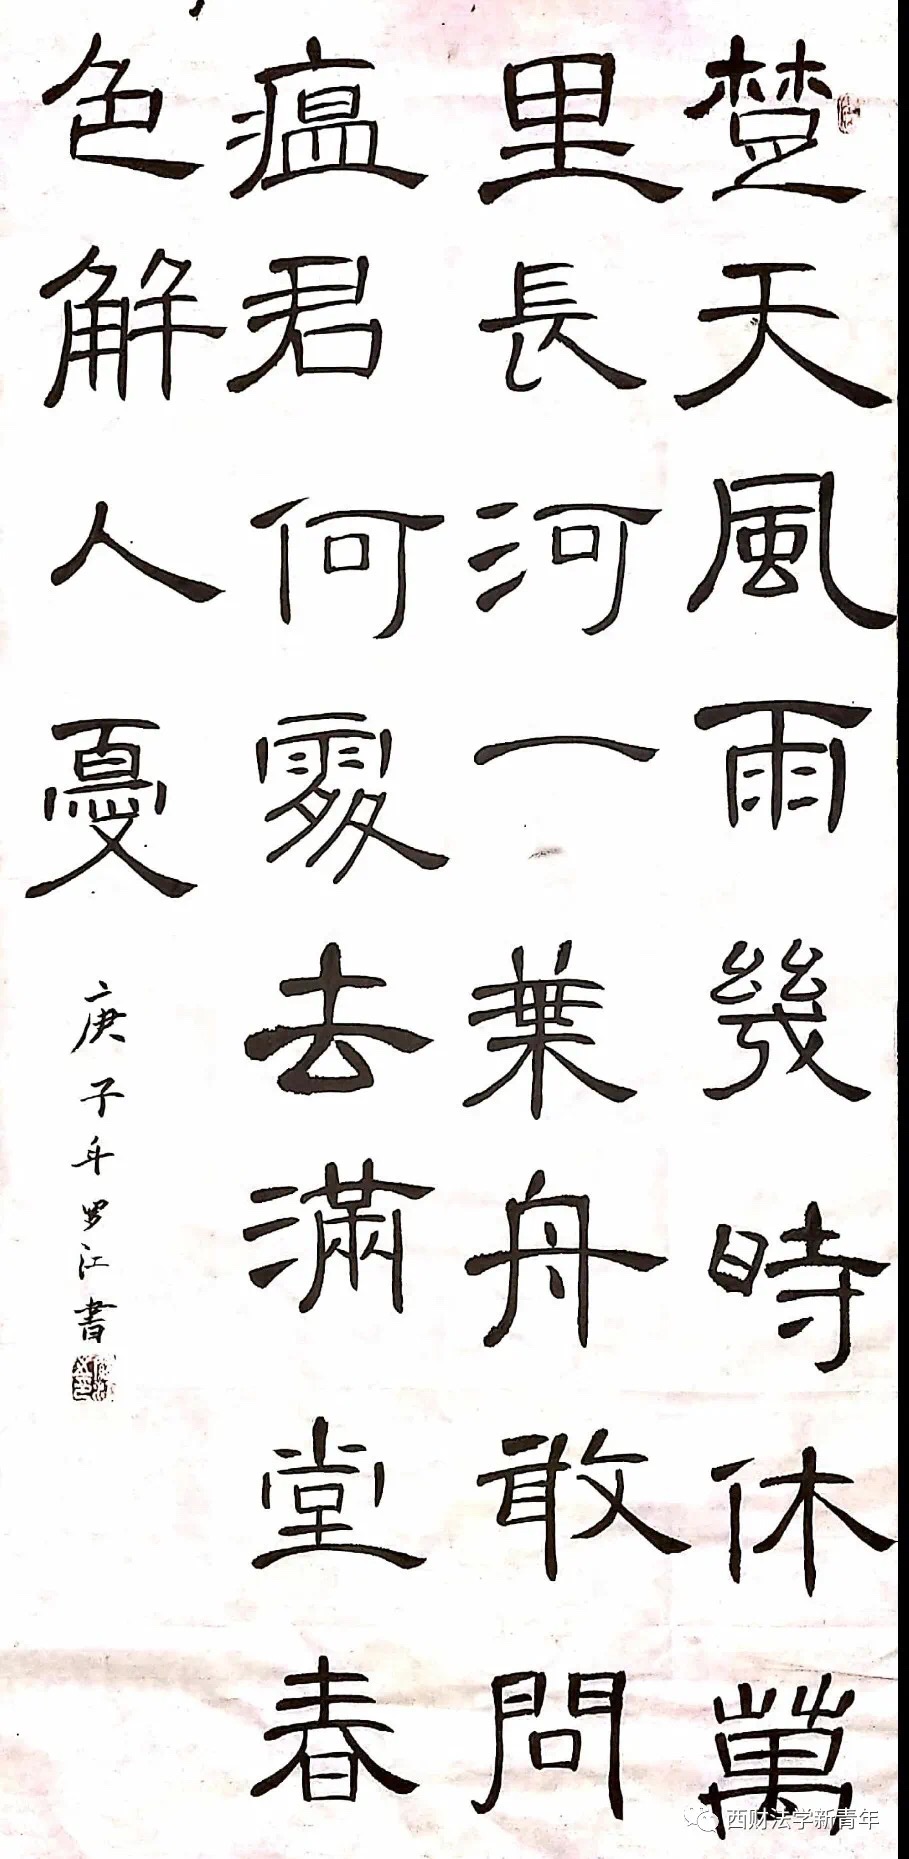 楚天風雨幾時休萬
里長河一葉舟敢問
瘟君何處去滿堂春
色解人憂
庚子年罗江書
西财法学新青年